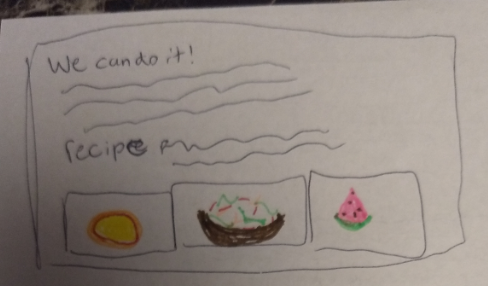 We can do it!
recipe